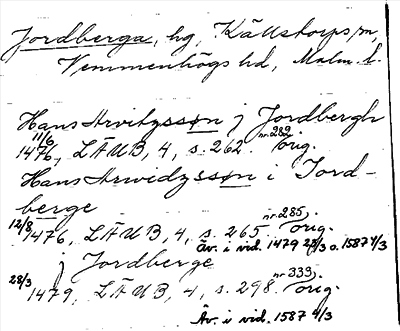 Jordberga, hg, Källstorps sn,
Vemmenhögs hd, Malm. l.
Hans Arvitzssøn j Jordbergh
11/6 1476, LÄUB, 4, s. 262 nr. 282. orig.
Hans Arwidzssøn i Jord-
berge
12/8 1476, LÄUB, 4, s. 265 nr. 285. orig.
Äv. i vid. 1479 28/3 o. 1587 4/3
j Jordberge
28/3 1479, LÄUB, 4, s. 298 nr. 333. orig.
Äv. i vid. 1587 4/3